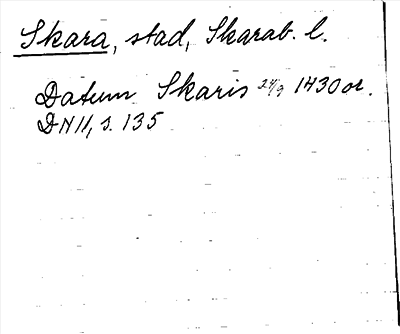 Skara, stad, Skarab. l.
Datum Skaris 24/9 1430 or.
DN 11, s. 135